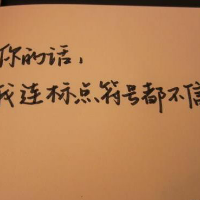 你的话,
我连标点符号都不信